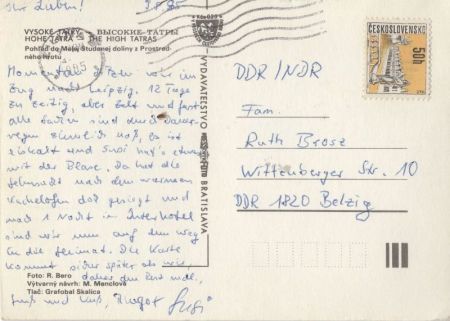 Ihr Lieben! 9.85
VYSOKÉ TATRY ВЫСОКИЕ ТАТРЫ
HOHE TATRA THE HIGH TATRAS
Pohľad do Malej Studenej doliny z Prostred-
ného hrotu
Momentan sitzen wir im
Zug nach Leipzig. 12 Tage
zu zeitig, aber Zelt und fast
alle Sachen sind durch Dauer-
regen ziemlich naß, es ist
eiskalt und Susi hat's etwas
mit der Blase. Da hat die
Sehnsucht nach dem warmen
Kachelofen doch gesiegt und
nach 1 Nacht im Interhotel
sind wir nun auf dem Weg
in die Heimat. Die Karte
kommt sicher später als wir,
daher den Rest mdl.
Gruß und Kuß, Margot Susi
Foto: R. Bero
Výtvarný návrh: M. Manclová
Tlač: Grafobal Skalica
VYDAVATEĽSTVO BRATISLAVA
ČESKOSLOVENSKO
50h
DDR / NDR
Fam.
Ruth Brosz
Wittenberger Str. 10
DDR 1820 Belzig